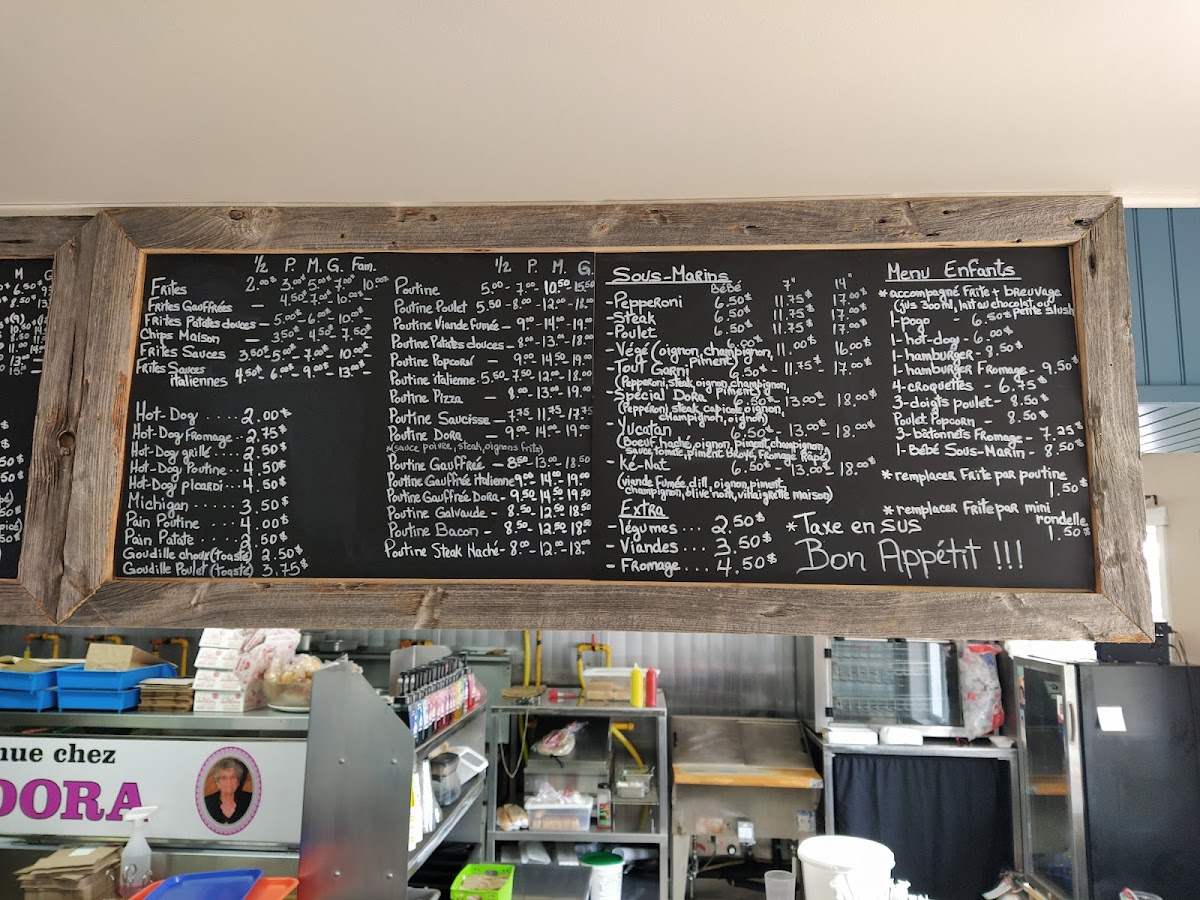 ½ P. M. G. Fam.
Frites 2.00$ 3.00$ 5.00$ 7.00$ 10.00$
Frites Gauffrées — 4.50$ - 7.00$ - 10.00$ —
Frites Patates douces — 5.00$ - 6.00$ - 10.00$ —
Chips Maison — 3.50$ - 4.50$ - 7.50$
Frites Sauces 3.50$ - 5.00$ - 7.00$ - 10.00$ -
Frites Sauces
italiennes 4.50$ - 6.00$ - 9.00$ - 13.00$ -
Hot-Dog ..... 2.00$
Hot-Dog Fromage... 2.75$
Hot-Dog grillé ... 2.50$
Hot-Dog Poutine.. 4.50$
Hot-Dog Picardi... 4.50$
Michigan .... 3.50$
Pain Poutine ... 4.00$
Pain Patate .. 2.50$
Goudille choux (toasté) 2.50$
Goudille Poulet (toasté) 3.75$
½ P. M. G.
Poutine 5.00 - 7.00 - 10.50 - 15.50
Poutine Poulet 5.50 - 8.00 - 12.00 - 18.00
Poutine Viande Fumée - 9.00 - 14.00 - 19.00
Poutine Patates douces - 8.00 - 13.00 - 18.00
Poutine Popcorn — 9.00 - 14.50 - 19.00
Poutine italienne 5.50 - 7.50 - 12.00 - 18.00
Poutine Pizza — 8.00 - 13.00 - 19.00
Poutine Saucisse — 7.75 - 11.75 - 17.75
Poutine Dora — 9.00 - 14.00 - 19.00
(sauce poivre, steak, oignons frits)
Poutine Gauffrée - 8.50 - 13.00 - 18.50
Poutine Gauffrée italienne 9.00 - 14.00 - 19.00
Poutine Gauffrée Dora - 9.50 - 14.50 - 19.50
Poutine Galvaude - 8.50 - 12.50 - 18.50
Poutine Bacon - 8.50 - 12.50 - 18.50
Poutine Steak Haché - 8.00 - 12.00 - 18.00
Sous-Marins
Bébé 7" 14"
- Pepperoni 6.50$ 11.75$ 17.00$
- Steak 6.50$ 11.75$ 17.00$
- Poulet 6.50$ 11.75$ 17.00$
- Végé (oignon, champignon, piment) 6.00$ 11.00$ 16.00$
- Tout Garni 6.50$ - 11.75$ - 17.00$
(Pepperoni, steak, oignon, champignon, piment)
- Spécial Dora 6.50$ - 13.00$ - 18.00$
(Pepperoni, steak, capicole, oignon,
champignon, oignon)
- Yucatan 6.50$ - 13.00$ - 18.00$
(Boeuf haché, oignon, piment, champignon,
sauce tomate, piment broyé, Fromage Rapé)
- Ké-Nat 6.50$ - 13.00$ - 18.00$
(viande Fumée, dill, oignon, piment,
champignon, olive noir, vinaigrette maison)
Extra
- légumes... 2.50$
- Viandes ... 3.50$
- Fromage .... 4.50$
Menu Enfants
* accompagné Frite + Breuvage
(jus 300ml, lait au chocolat, ou petite slush
1-pogo - 6.50$
1-hot-dog - 6.00$
1-hamburger - 8.50$
1-hamburger Fromage - 9.50$
4-croquettes - 6.75$
3-doigts poulet - 8.50$
Poulet Popcorn - 8.50$
3-bâtonnets Fromage - 7.25$
1-Bébé Sous-Marin - 8.50$
* remplacer Frite par poutine
1.50$
* remplacer Frite par mini
rondelle
1.50$
* Taxe en sus
Bon Appétit !!!
nue chez
DORA